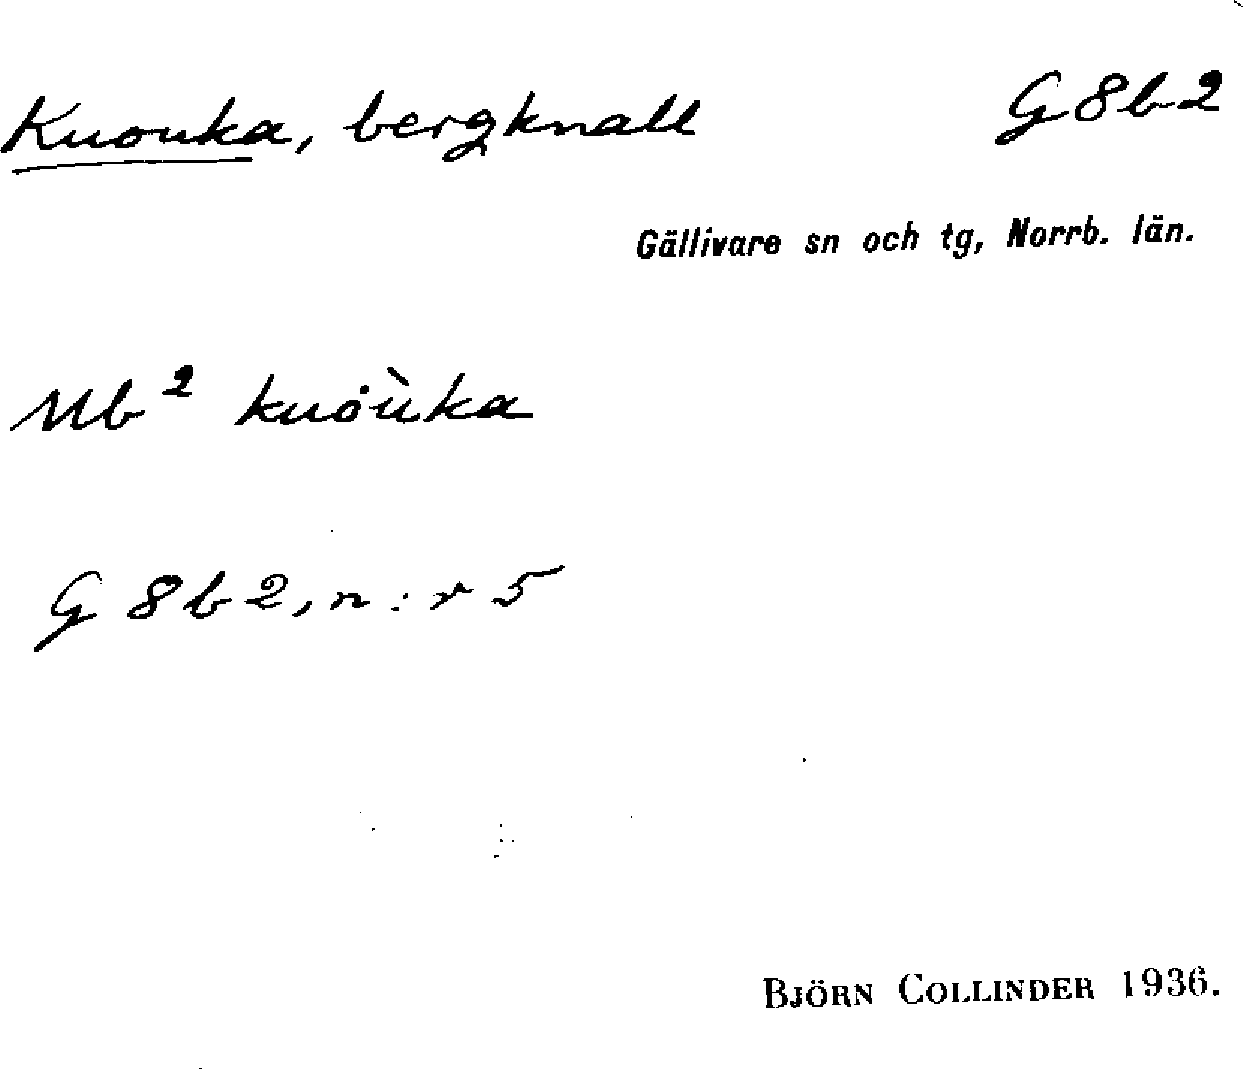 Kuouka, bergknall G8b2
Gällivare sn och tg, Norrb. län.
Mb² kuȯùka
G 8 b 2, n:r 5
BJÖRN COLLINDER 1936.